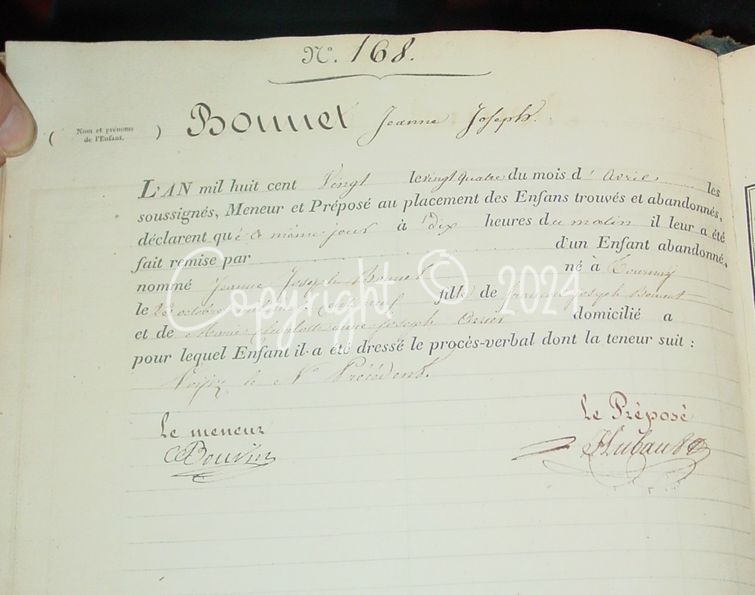 N°. 168.
( Nom et prénoms de l'Enfant. ) Bonnet Jeanne Joseph.
L'AN mil huit cent Vingt le vingt quatre du mois d'avril les
soussignés, Meneur et Préposé au placement des Enfans trouvés et abandonnés,
déclarent qu'à ce même jour à dix heures du matin il leur a été
fait remise par d'un Enfant abandonné,
nommé Jeanne Joseph Bonnet né à Tournay
le octobre fille de joseph Bonnet
et de Marie joseph domicilié a
pour lequel Enfant il a été dressé le procès-verbal dont la teneur suit :
Voyez le N° Précédent.
Le meneur
Bouvier
Le Préposé
Hubault
Copyright © 2024